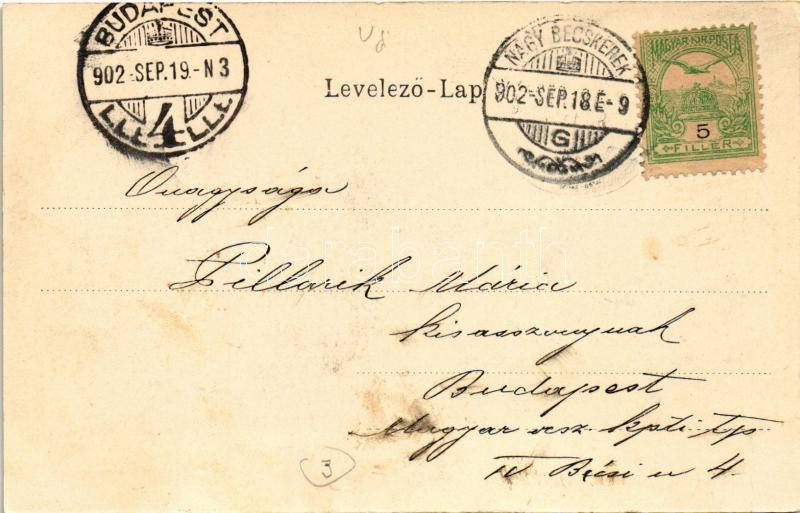 BUDAPEST
902-SEP.19.-N 3
4
Levelező-Lap
NAGY BECSKEREK
902-SEP.18.E-9
G
MAGYAR KIR. POSTA
5
FILLÉR
Onagysága
Pillarik Mária
kisasszonynak
Budapest
Magyar
IV Bécsi u 4.
3
darabanth